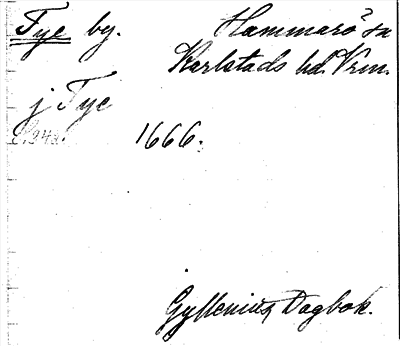 Tye by. Hammarö sn
Karlstads hd. Vrm.
j Tye
s. 242. 1666.
Gyllenius Dagbok.